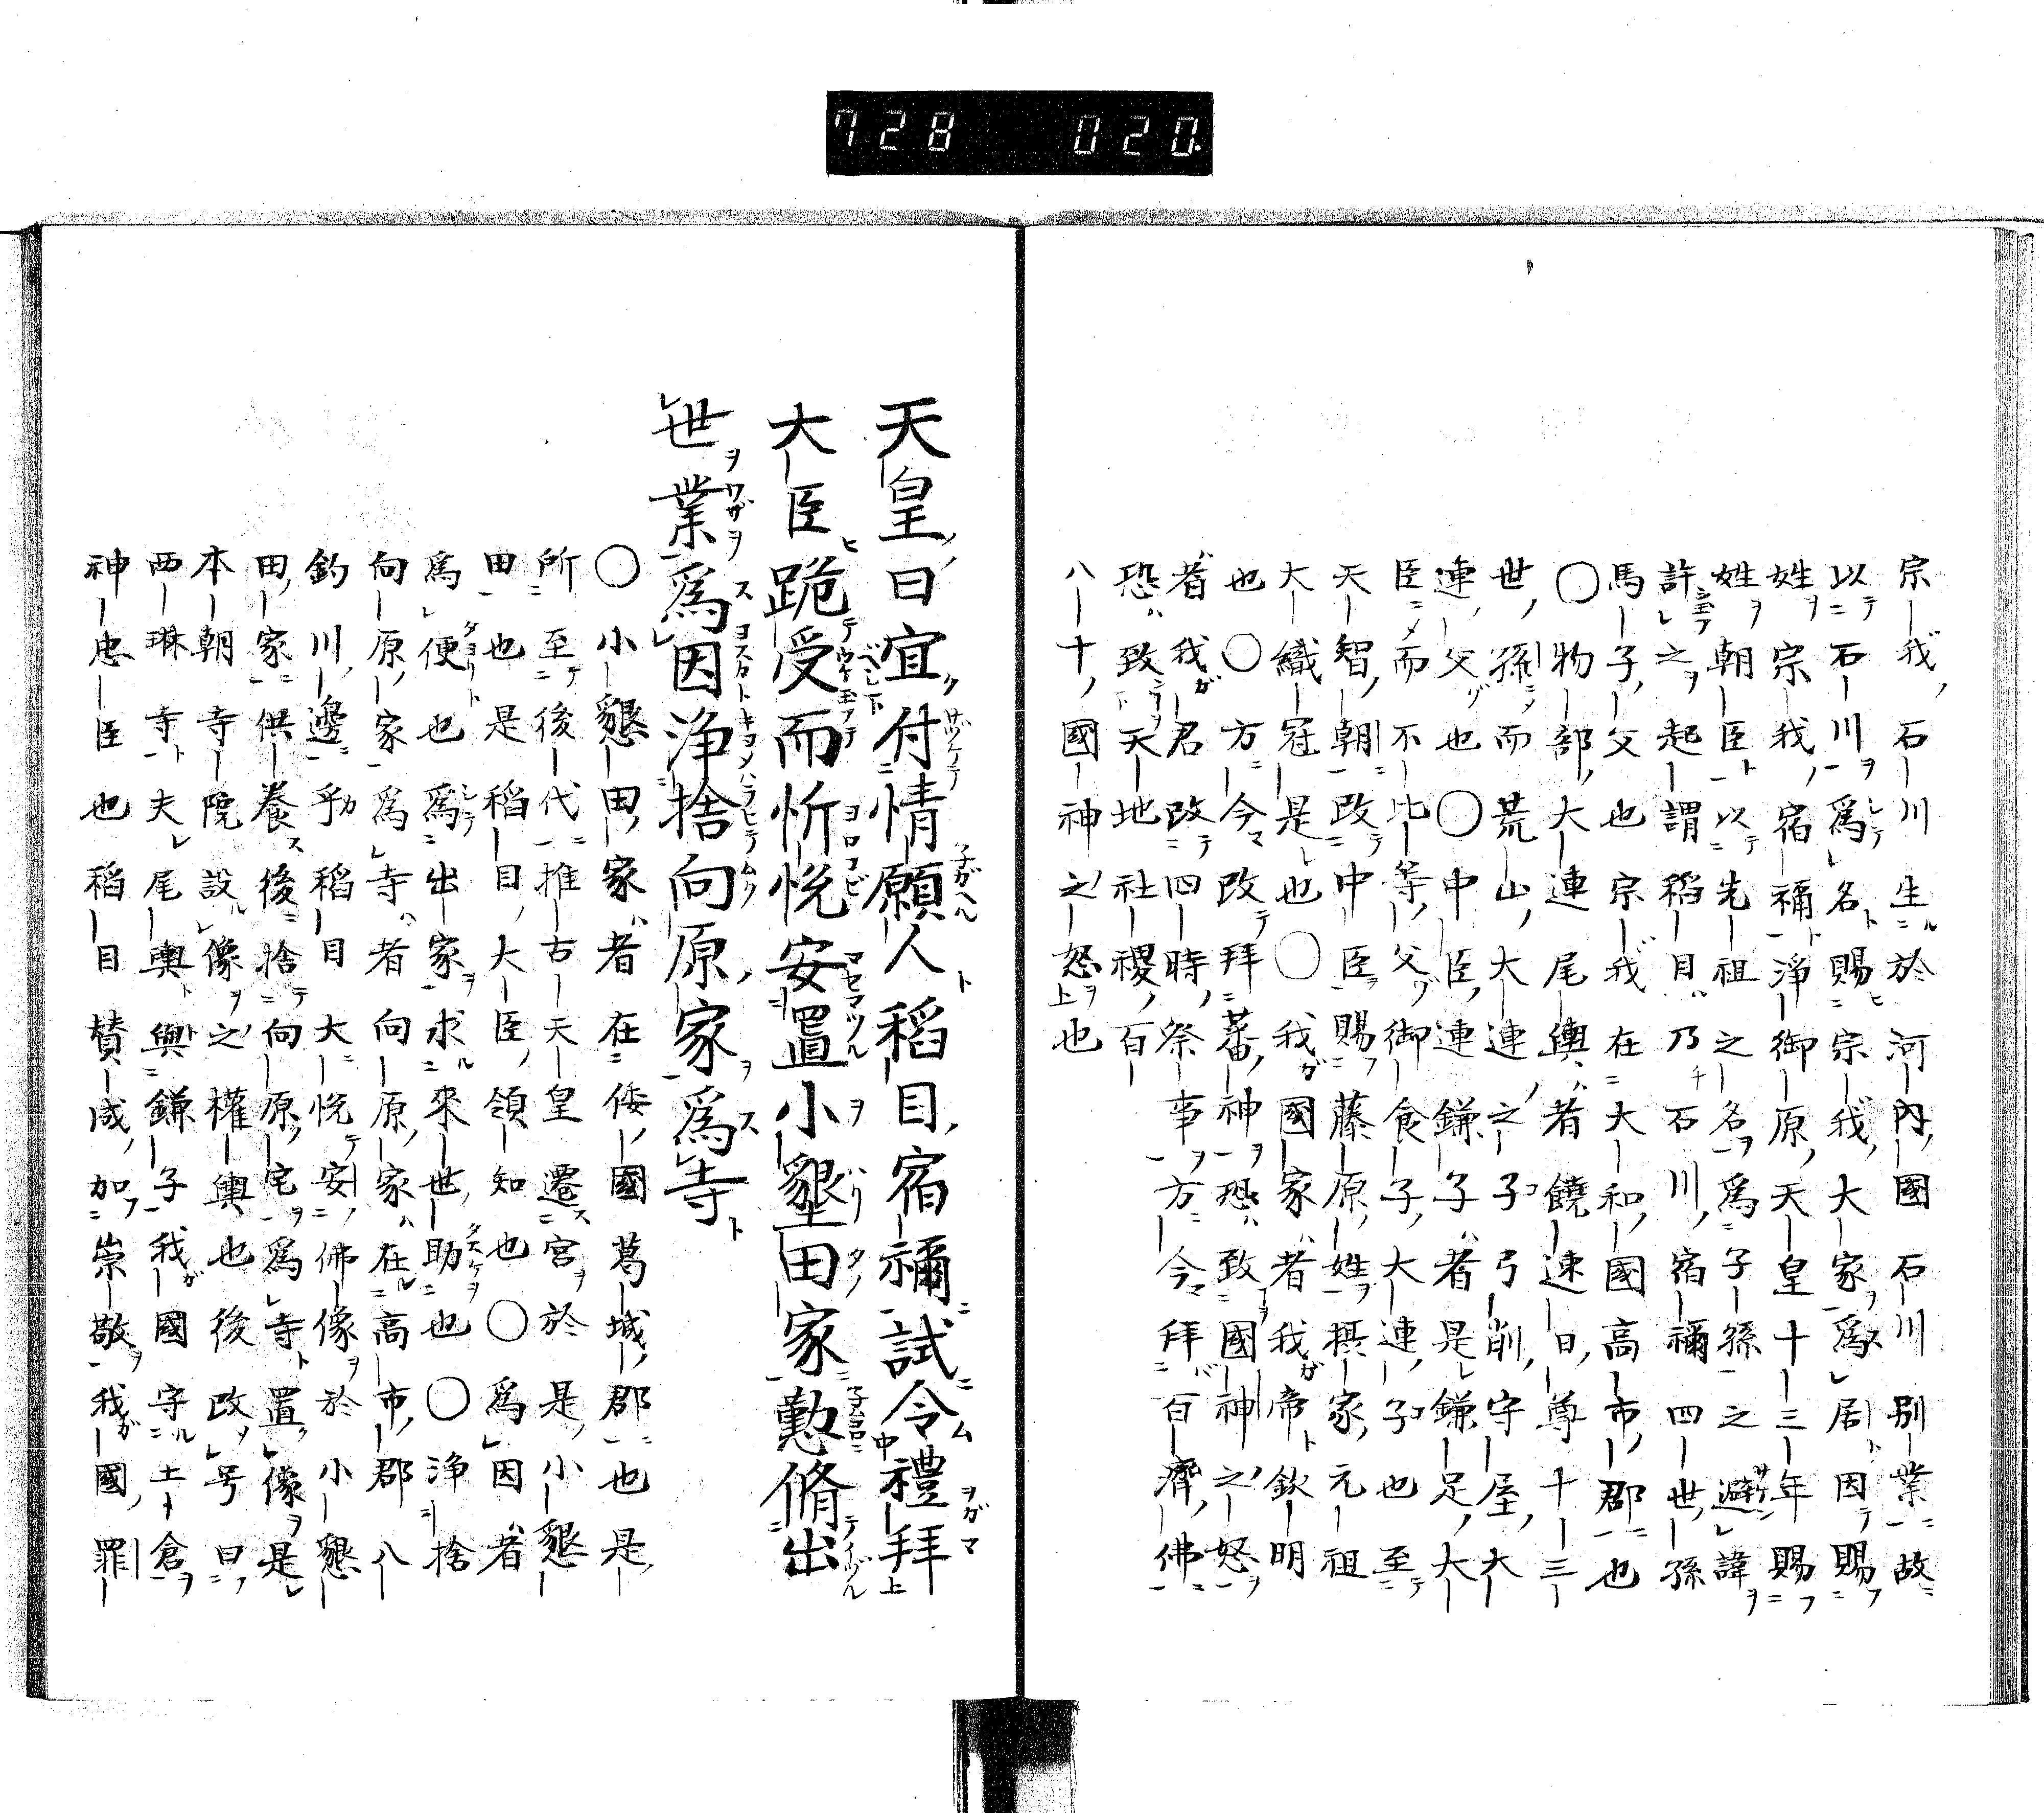 728 020
宗我石川生於河內國石川別業故
以石川爲名賜宗我大家爲居因賜
姓宗我宿禰淨御原天皇十三年賜
姓朝臣以先祖之名爲子孫之避諱
許之起謂稻目乃石川宿禰四世孫
馬子父也宗我在大和國高市郡也
〇物部大連尾輿者饒速日尊十三
世孫而荒山大連之子弓削守屋大
連父也〇中臣連鎌子者是鎌足大
臣而不比等父御食子大連子也至
天智朝改中臣賜藤原姓摂家元祖
大織冠是也〇我國家者我帝欽明
也〇方今改拜蕃神恐致國神之怒
者我君改四時祭事方今拜百濟佛
恐致天地社稷百
八十國神之怒也
天皇曰宜付情願人稻目宿禰試令禮拜
大臣跪受而忻悦安置小墾田家懃脩出
世業爲因淨捨向原家爲寺
〇小懇田家者在倭國葛城郡也是
所至後代推古天皇遷宮於是小懇
田也是稻目大臣領知也〇爲因者
爲便也爲出家求來世助也〇淨捨
向原家爲寺者向原家在高市郡八
釣川邊乎稻目大悦安佛像於小懇
田家供養後捨向原宅爲寺置像是
本朝寺院設像之權輿也後改号曰
西琳寺夫尾輿與鎌子我國守土倉
神忠臣也稻目賛成加崇敬我國罪